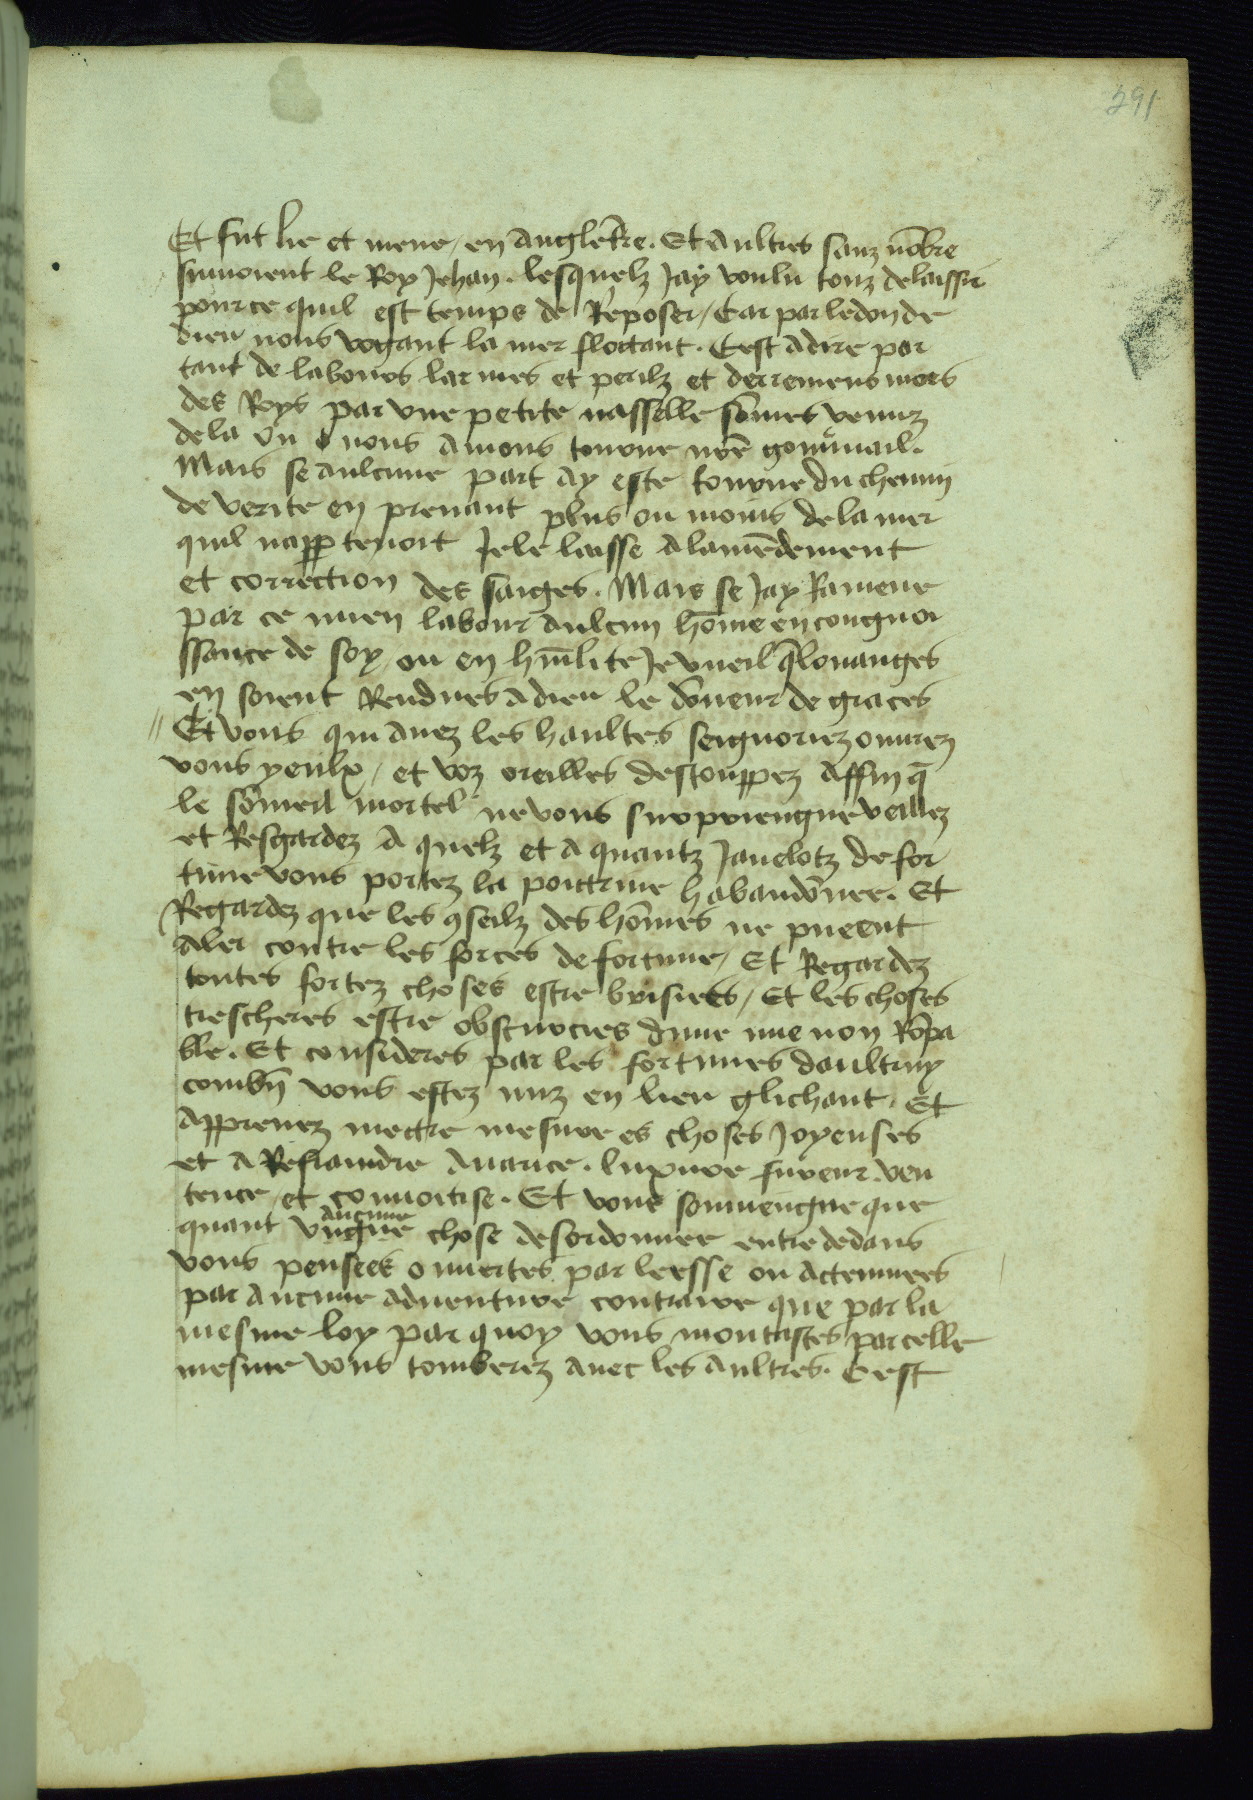 291
Et fut lie et mene / en angletre. Et aultres sanz nōbre
suiuoient le Roy Jehan. lesquelz Jay voulu touz delaissir
pource quil est temps de Reposer / Car par ledon de
dieu nous vogant la mer flotant. Cest adire par
tant de labours larmes et perilz et derremens mors
des Roys par vne petite nasselle sōmes venuz
dela ou nous auions tourne nr̄e gouūnail.
Mais se aulcune part ay este tourne du chemin
de verite en prenant plus ou moins dela mer
quil napptenoit Je le laisse alamēdement
et correction des saiges. Mais se Jay Ramene
par ce mien labour aulcun hōme en congnoi
ssance de soy ou en hūilite Je vueil q̄ louanges
en soient Rendues adieu le dōneur de graces
// Et vous qui auez les haultes seignoriez ouurez
vous yeulx / et voz oreilles destouppez affin q̄
le sōmeil mortel ne vous surpriengne veillez
et Resgardez a quelz et a quantz Jauelotz de for
tune vous portez la poictrine habandōnee. Et
Regardez que les ꝯseilz des hōmes ne pueent
aler contre les forces de fortune / Et Regardez
toutes fortez choses estre brisiees / Et les choses
trescheres estre obscurcies dune nue non Rōpa
ble. Et consideres par les fortunes daultruy
combn̄ vous estez miz en lieu glichant. Et
apprenez mectre mesure es choses Joyeuses
et a Refraindre auarice. luxure fureur. ven
tence / et conuoitise. Et vous souuengne que
aucune
quant vngne chose desordonnee entre dedans
vous pensees ouuertes par leesse ou actenuees
par aucune aduenture contraire que par la
mesme loy par quoy vous montastes par celle
mesme vous tomberez auec les aultres. Cest